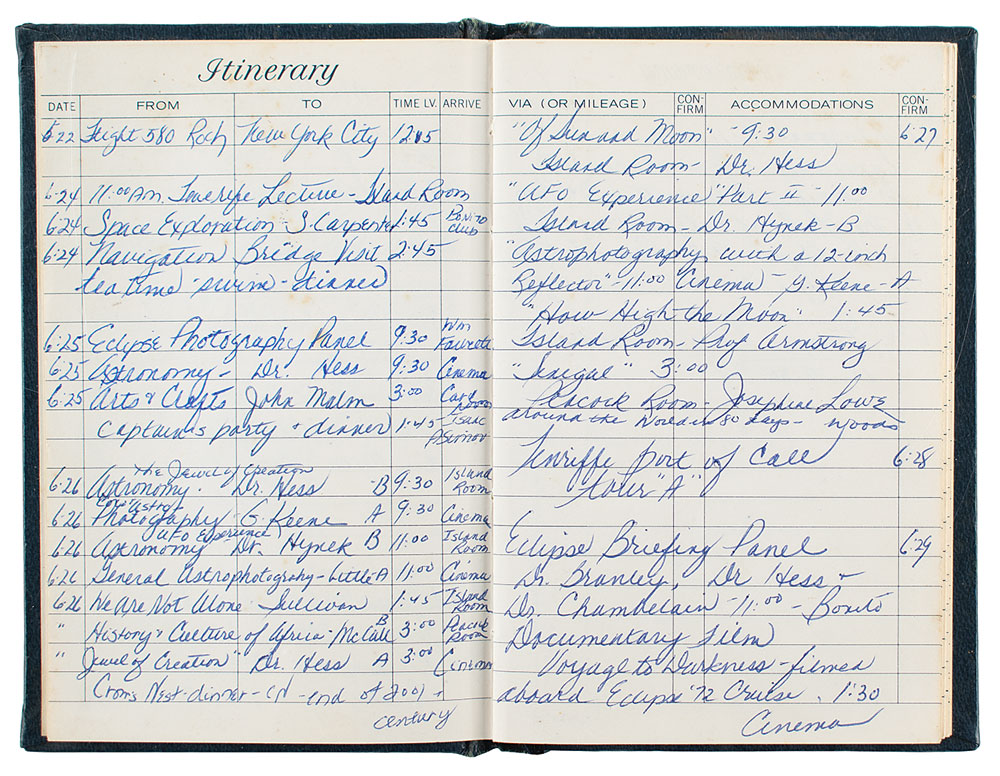 Itinerary
DATE FROM TO TIME LV. ARRIVE
6-22 Flight 580 Roch New York City 12:15
6-24 11:00 Am. Tenerife Lecture - Island Room
6-24 Space Exploration - S. Carpenter 1:45 Bonito Club
6-24 Navigation Bridge Visit 2:45
tea time - swim - dinner
6-25 Eclipse Photography Panel 9:30 Wm
6-25 Astronomy - Dr. Hess 9:30 Cinema
6-25 Arts & Crafts John Malm 3:00 Card Room
Captain's party & dinner 1:45 Isaac Asimov
The Jewel of Creation
6-26 Astronomy - Dr. Hess -B 9:30 Island Room
6-26 Photography G. Keene A 9:30 Cinema
UFO Experience
6-26 Astronomy Dr. Hynek B 11:00 Island Room
6-26 General Astrophotography - Little A 11:00 Cinema
6-26 We Are Not Alone Sullivan 1:45 Island Room
" History & Culture of Africa - McCall B 3:00 Peacock Room
" Jewel of Creation" Dr. Hess A 3:00 Cinema
Crow's Nest - dinner - - end of
century
VIA (OR MILEAGE) CON-FIRM ACCOMMODATIONS CON-FIRM
"Of Sun and Moon" - 9:30 6-27
Island Room - Dr. Hess
"UFO Experience" Part II - 11:00
Island Room - Dr. Hynek - B
"Astrophotography with a 12-inch
Reflector" - 11:00 Cinema - G. Keene - A
"How High the Moon" 1:45
Island Room - Prof Armstrong
3:00
Peacock Room - Josephine Lowe
around the World in 80 days -
port of Call 6-28
tour "A"
Eclipse Briefing Panel 6-29
Dr. Branley, Dr Hess &
Dr. Chamberlain - 11:00 - Bonito
Documentary film
Voyage to Darkness - filmed
aboard Eclipse '72 Cruise. 1:30
Cinema